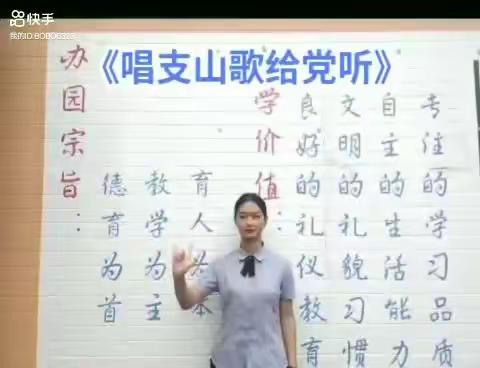 快手
《唱支山歌给党听》
办园宗旨：
德育为首
教学为主
育人为本
学价值：
良好的礼仪教育
文明的礼貌习惯
自主的生活能力
专注的学习品质